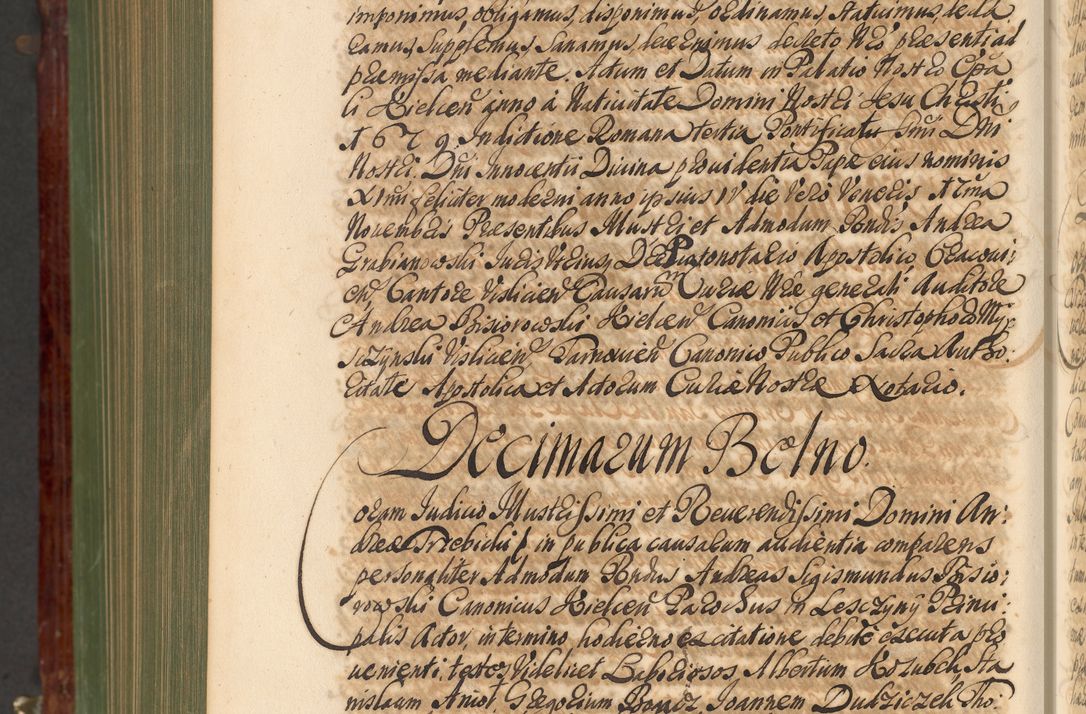 imponimus, obligamus, disponimus, ordinamus, statuimus, decla
ramus, supplemus, sanamus, decernimus decreto Nro præsenti ad
præmissa mediante. Actum et Datum in Palatio Nostro Epa
li Kielcen anno à Nativitate Domini Nostri Jesu Christi
1679. Indictione Romana tertia Pontificatus Smi Dni
Nostri Dni Innocentii Divina providentia Papæ eius nominis
XImi feliciter moderni anno ipsius IV die vero Veneris
Novembris Præsentibus Illustri et Admodum Rndis Andrea
Grabianowski Juris Protonotario Apostolico Cracovi:
en Cantore Vislicien Causarum Curiæ Nræ generali Auditore
Andrea Pisiorowski Kielcen Canonicis et Christophoro
Vislicien Tarnovien Canonico Publico Sacra Autho:
ritate Apostolica et Actorum Curiæ Nostræ Notario.
Decimarum Belno.
oram Judicio Illustrissimi et Reverendissimi Domini An:
dreæ Trzebicki in publica causarum audientia comparens
personaliter Admodum Rndus Andreas Sigismundus Pisio:
rowski Canonicus Kielcen Parochus in Lesczyny Princi:
palis Actor, in termino hodierno ex citatione debitè executa pro
venienti, testes videlicet Laboriosos Albertum Kozubek, Sta
nislaum Anioł, Gregorium Joannem Dudziczek Tho: